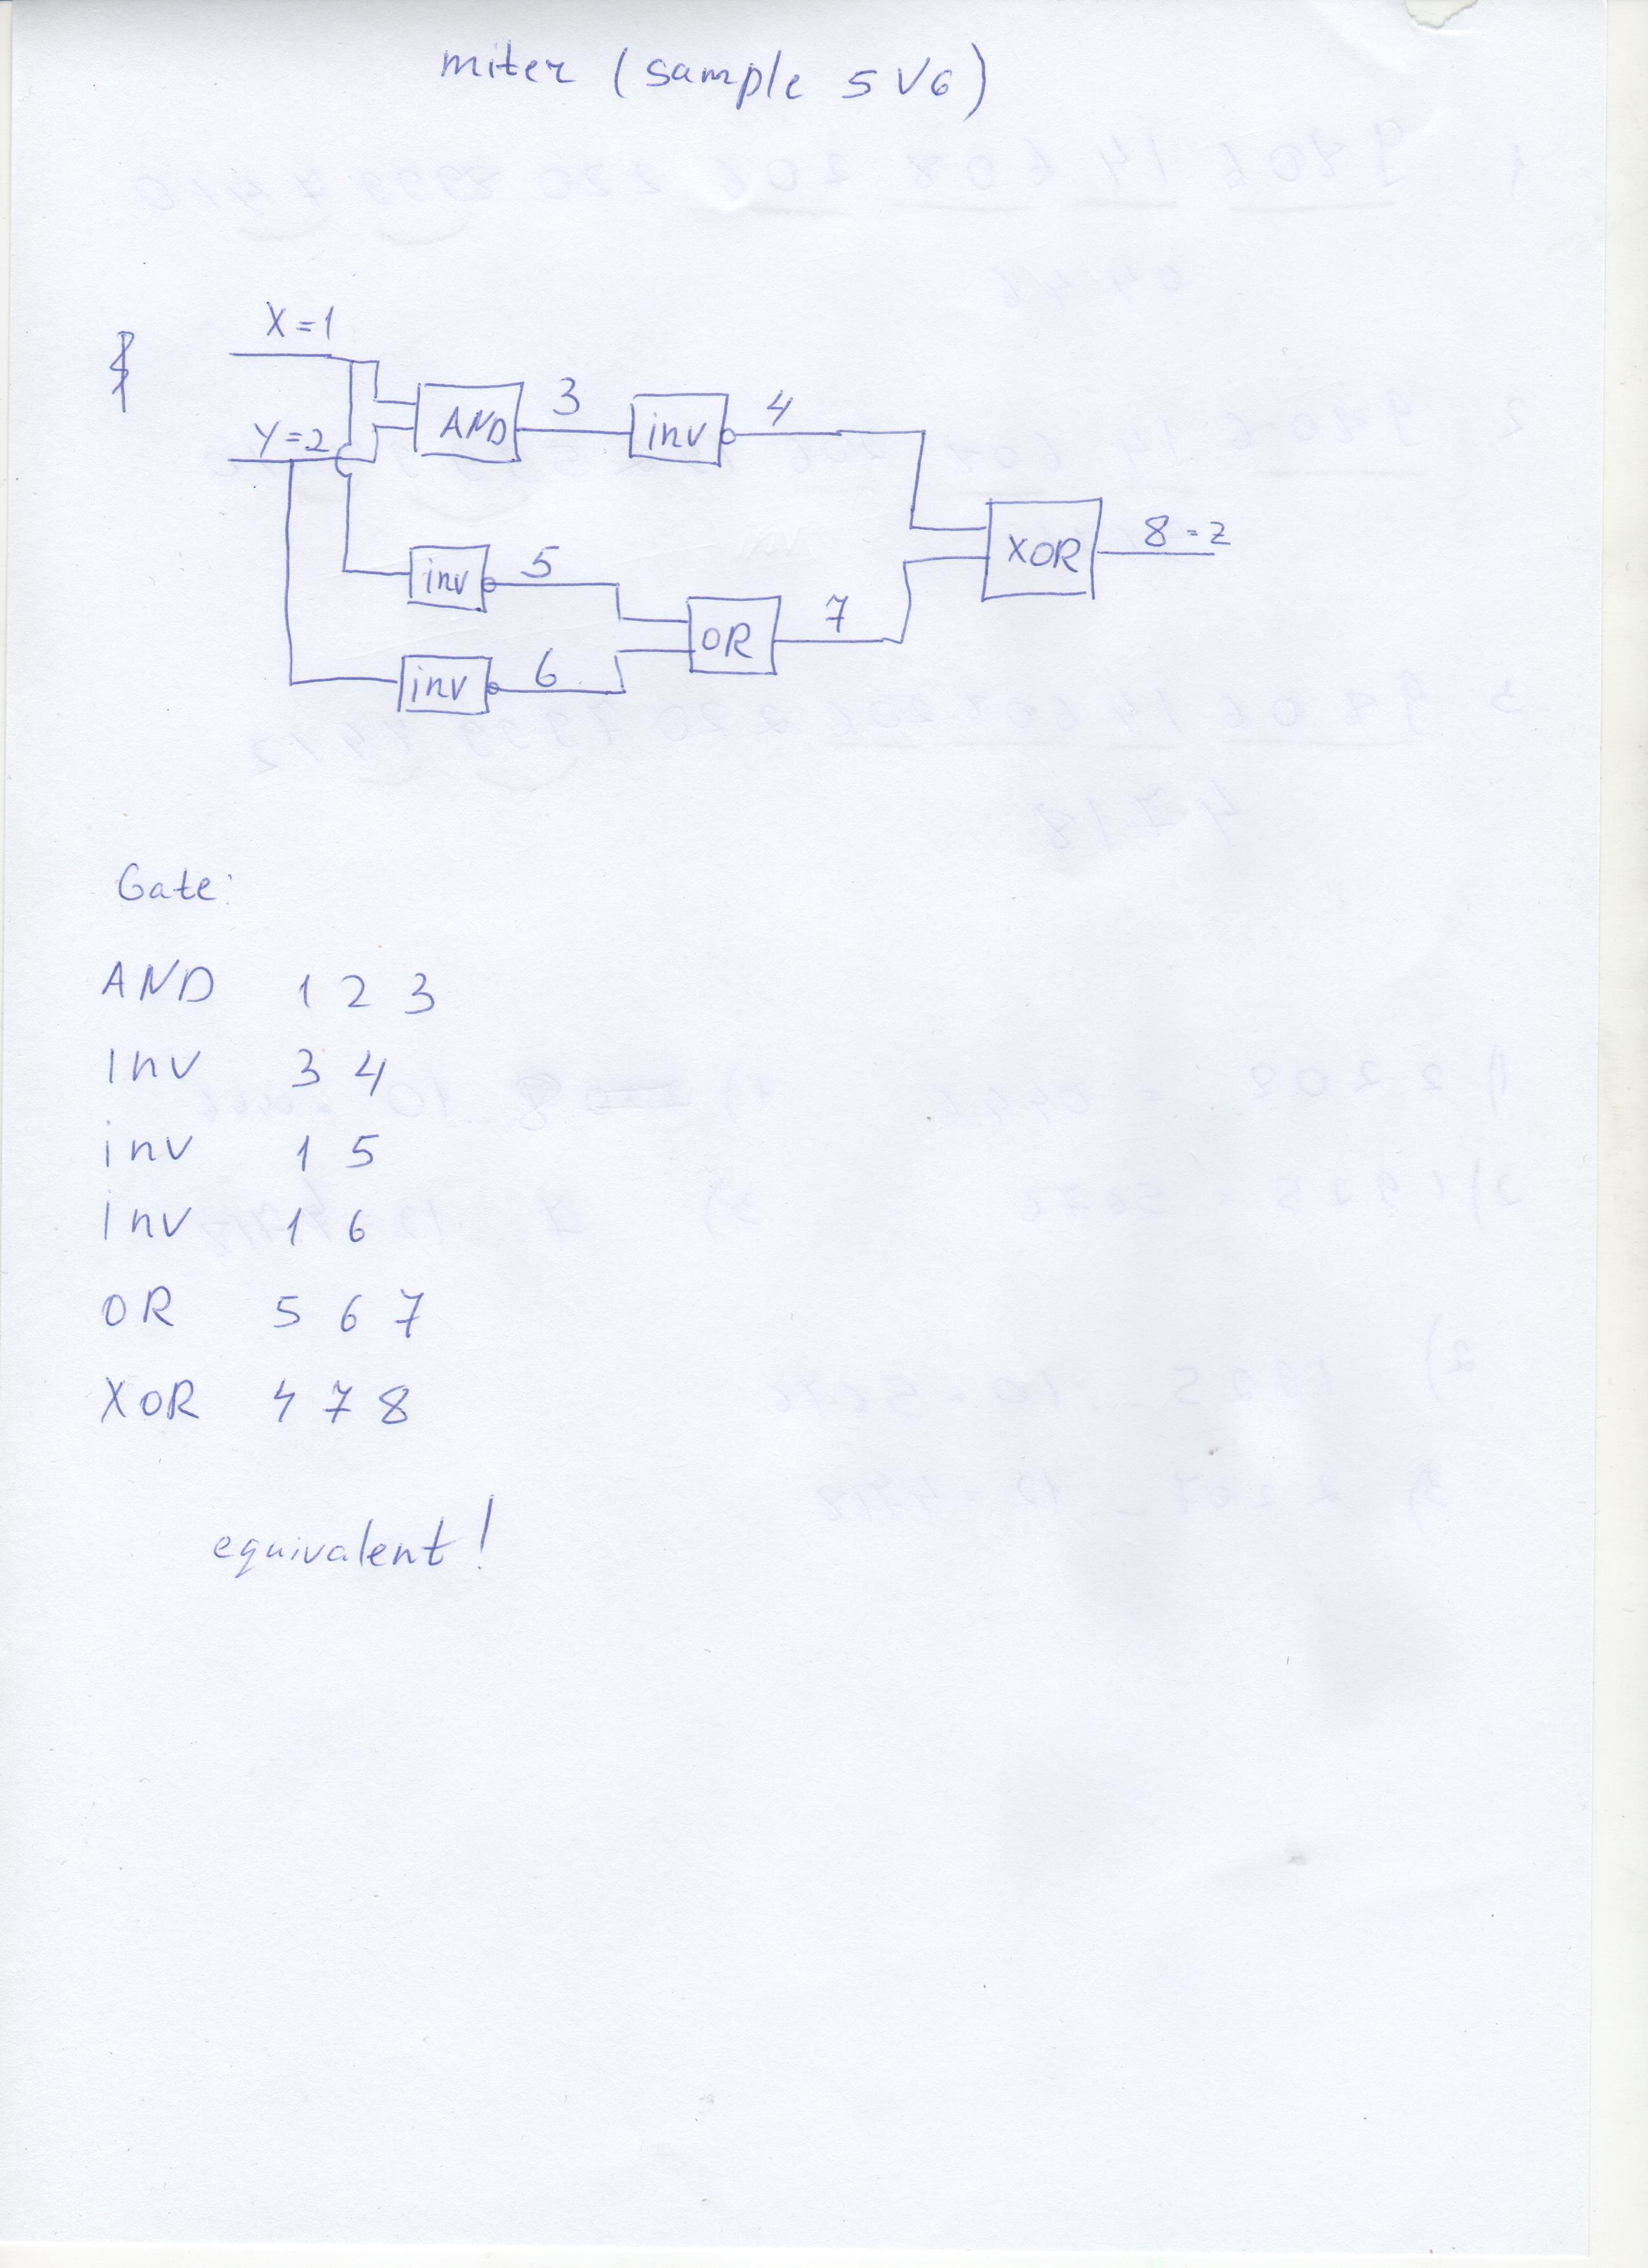 miter (sample 5 V 6)
X=1
3
4
AND
inv
Y=2
8 = z
XOR
5
inv
7
OR
6
inv
Gate:
AND 1 2 3
Inv 3 4
inv 1 5
Inv 1 6
OR 5 6 7
XOR 4 7 8
equivalent!